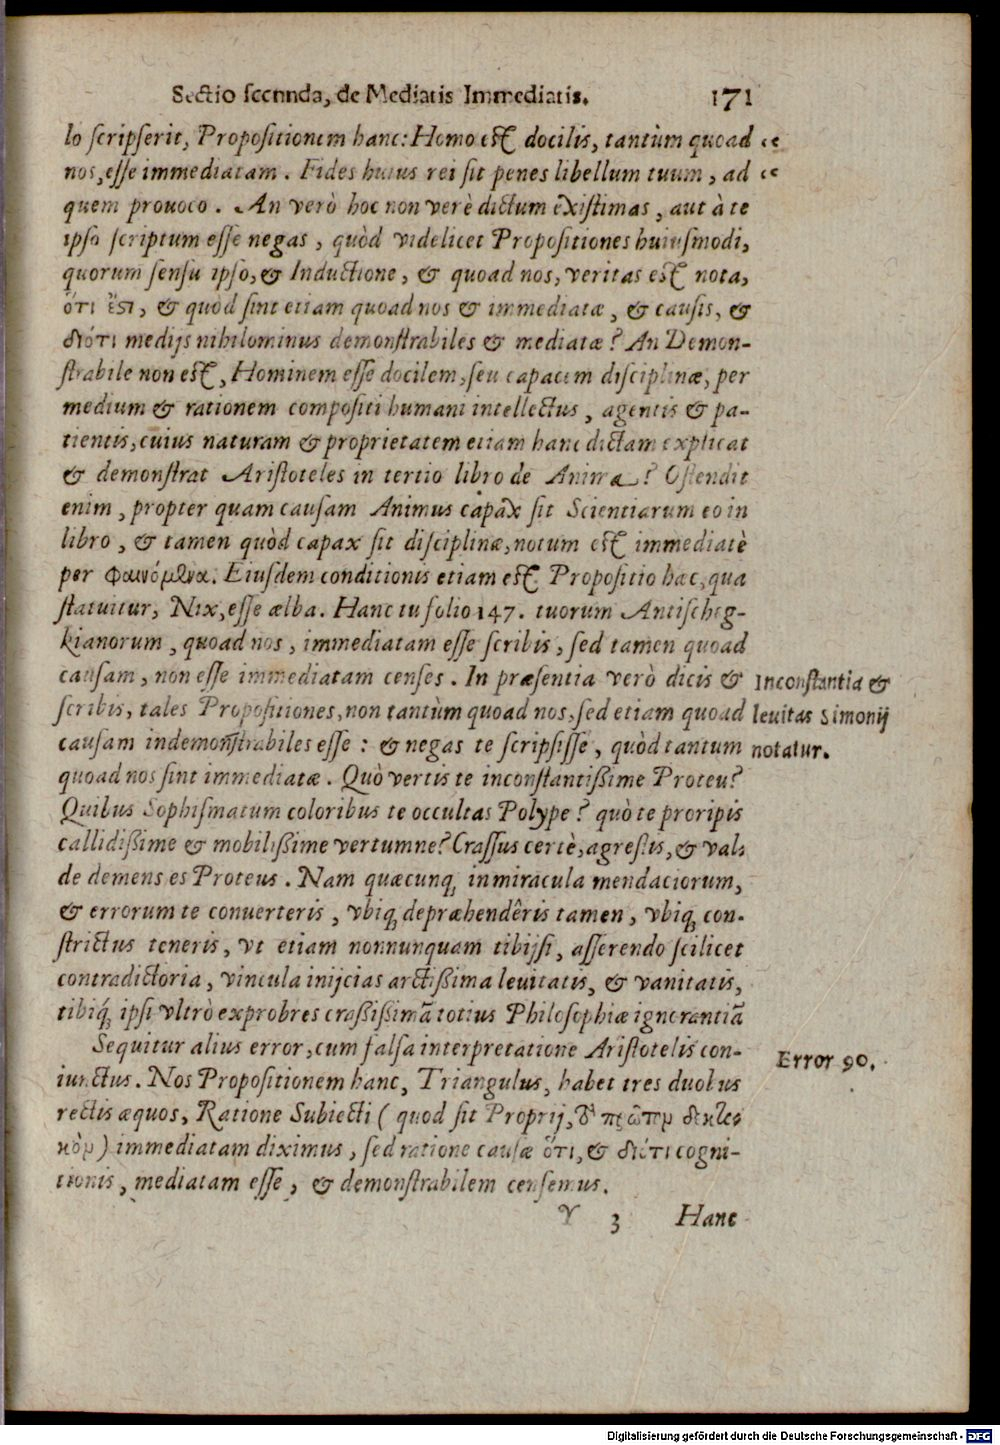 Sectio secunda, de Mediatis Immediatis. 171
lo scripserit, Propositionem hanc: Homo est docilis, tantùm quoad "
nos, esse immediatam. Fides huius rei sit penes libellum tuum, ad "
quem prouoco. An verò hoc non verè dictum existimas, aut à te
ipso scriptum esse negas, quòd videlicet Propositiones huiusmodi,
quorum sensu ipso, & Inductione, & quoad nos, veritas est nota,
ὅτι ἔστι, & quòd sint etiam quoad nos & immediatæ, & causis, &
διότι medijs nihilominus demonstrabiles & mediatæ? An Demon-
strabile non est, Hominem esse docilem, seu capacem disciplinæ, per
medium & rationem compositi humani intellectus, agentis & pa-
tientis, cuius naturam & proprietatem etiam hanc dictam explicat
& demonstrat Aristoteles in tertio libro de Anima? Ostendit
enim, propter quam causam Animus capax sit Scientiarum eo in
libro, & tamen quòd capax sit disciplinæ, notum est immediatè
per φαινόμενα. Eiusdem conditionis etiam est Propositio hæc, qua
statuitur, Nix, esse alba. Hanc tu folio 147. tuorum Antischeg-
kianorum, quoad nos, immediatam esse scribis, sed tamen quoad
causam, non esse immediatam censes. In præsentia verò dicis &
scribis, tales Propositiones, non tantùm quoad nos, sed etiam quoad
causam indemonstrabiles esse: & negas te scripsisse, quòd tantum
quoad nos sint immediatæ. Quò vertis te inconstantißime Proteu?
Quibus Sophismatum coloribus te occultas Polype? quò te proripis
callidißime & mobilißime vertumne? Crassus certè, agrestis, & val-
de demens es Proteus. Nam quæcunq; in miracula mendaciorum,
& errorum te conuerteris, vbiq; depræhendêris tamen, vbiq; con-
strictus teneris, vt etiam nonnunquam tibijpsi, asserendo scilicet
contradictoria, vincula inijcias arctißima leuitatis, & vanitatis,
tibiq́; ipsi vltrò exprobres craßißimā totius Philosophiæ ignorantiā
Inconstantia &
leuitas Simonij
notatur.
Sequitur alius error, cum falsa interpretatione Aristotelis con-
iunctus. Nos Propositionem hanc, Triangulus, habet tres duobus
rectis æquos, Ratione Subiecti (quod sit Proprij, τοῦ πρώτου δεκτι-
κὸν) immediatam diximus, sed ratione causæ ὅτι, & διότι cogni-
tionis, mediatam esse, & demonstrabilem censemus.
Error 90.
Y 3 Hanc
Digitalisierung gefördert durch die Deutsche Forschungsgemeinschaft - DFG